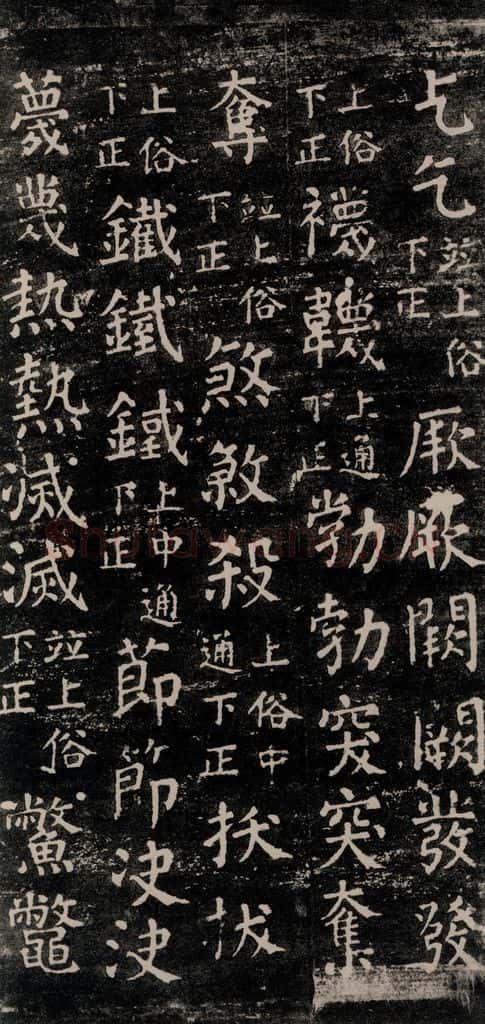 乞乞竝上俗下正厥厥闕闕發發
上俗下正襪韈上通下正勃勃突突奪
奪竝上俗下正煞煞殺上俗中通下正拔拔
上俗下正鐵鐵鐵上中通下正莭節决決
蔑蔑熱熱滅滅竝上俗下正鱉鼈